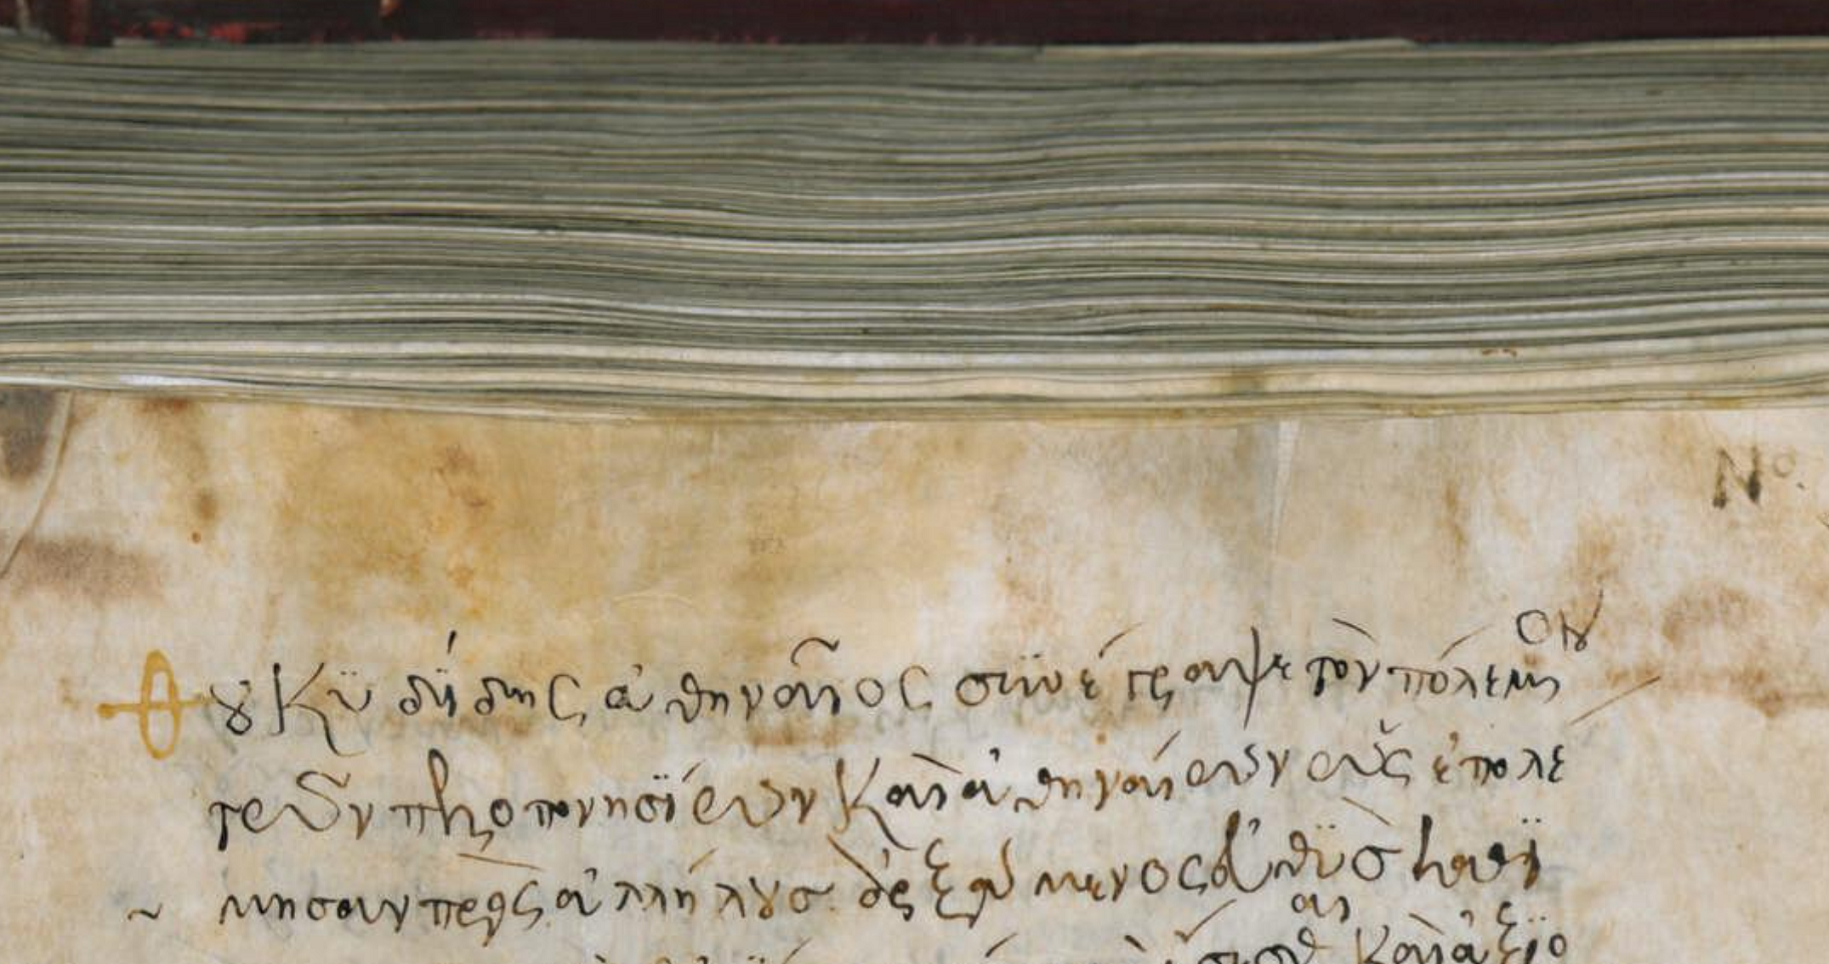 Nο.
Θουκϋδΐδης ἀθηναῖος σϋνέγραψε τὸν πόλεμον
τῶν πελοποννησΐων καὶ ἀθηναίων ὡς ἐπολέ
μησαν πρὸς ἀλλήλους. ἀρξάμενος εὐθϋς
καὶ ἀξϊο